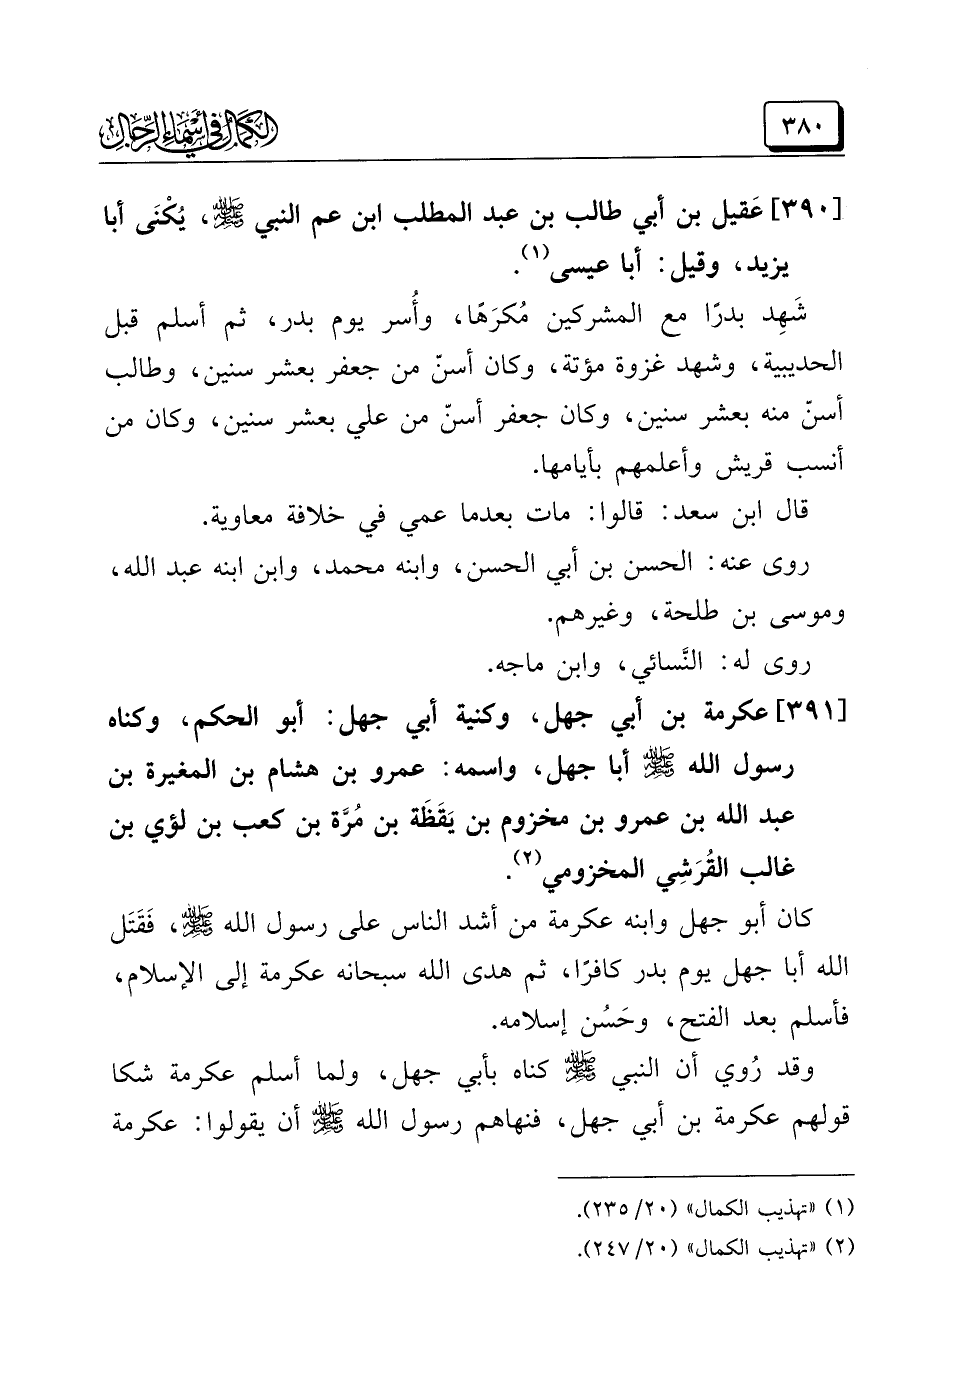 ٣٨٠
الكمال في أسماء الرجال
[٣٩٠] عَقيل بن أبي طالب بن عبد المطلب ابن عم النبي ﷺ، يُكْنَى أبا
يزيد، وقيل: أبا عيسى(١).
شَهِد بدرًا مع المشركين مُكرَهًا، وأُسر يوم بدر، ثم أسلم قبل
الحديبية، وشهد غزوة مؤتة، وكان أسنّ من جعفر بعشر سنين، وطالب
أسنّ منه بعشر سنين، وكان جعفر أسنّ من علي بعشر سنين، وكان من
أنسب قريش وأعلمهم بأيامها.
قال ابن سعد: قالوا: مات بعدما عمي في خلافة معاوية.
روى عنه: الحسن بن أبي الحسن، وابنه محمد، وابن ابنه عبد الله،
وموسى بن طلحة، وغيرهم.
روى له: النَّسائي، وابن ماجه.
[٣٩١] عكرمة بن أبي جهل، وكنية أبي جهل: أبو الحكم، وكناه
رسول الله ﷺ أبا جهل، واسمه: عمرو بن هشام بن المغيرة بن
عبد الله بن عمرو بن مخزوم بن يَقَظَة بن مُرَّة بن كعب بن لؤي بن
غالب القُرَشِي المخزومي(٢).
كان أبو جهل وابنه عكرمة من أشد الناس على رسول الله ﷺ، فَقَتَل
الله أبا جهل يوم بدر كافرًا، ثم هدى الله سبحانه عكرمة إلى الإسلام،
فأسلم بعد الفتح، وحَسُن إسلامه.
وقد رُوي أن النبي ﷺ كناه بأبي جهل، ولما أسلم عكرمة شكا
قولهم عكرمة بن أبي جهل، فنهاهم رسول الله ﷺ أن يقولوا: عكرمة
(١) «تهذيب الكمال» (٢٠/ ٢٣٥).
(٢) «تهذيب الكمال» (٢٠/ ٢٤٧).